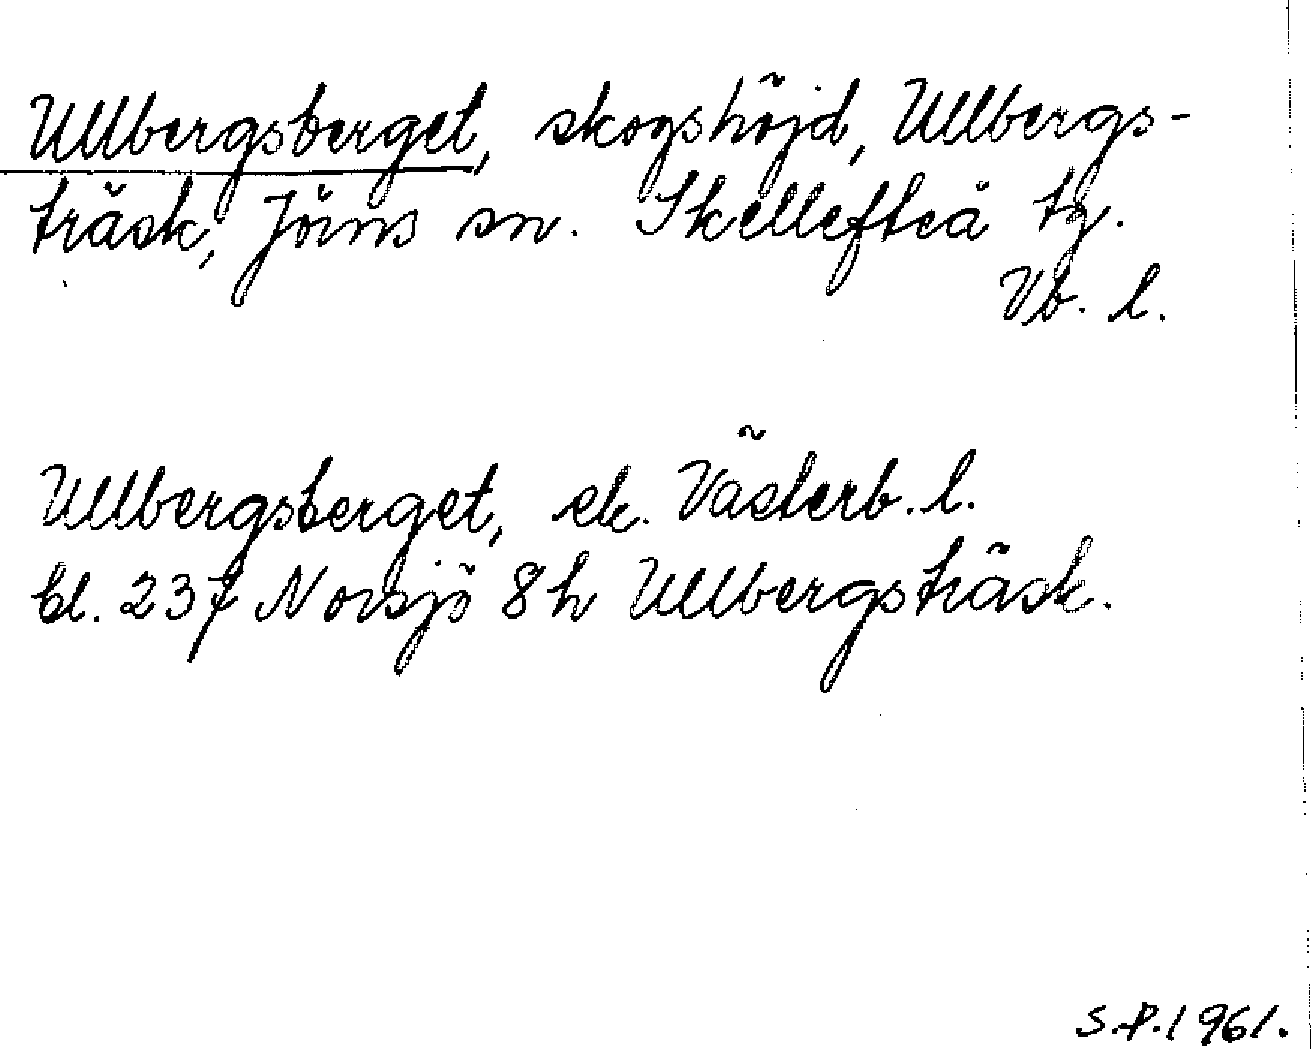 Ullbergsberget, skogshöjd, Ullbergs-
träsk, Jörns sn. Skellefteå tg.
Vb. l.
Ullbergsberget, ek. Västerb. l.
bl. 237 Norsjö 8h Ullbergsträsk.
S.P. 1961.